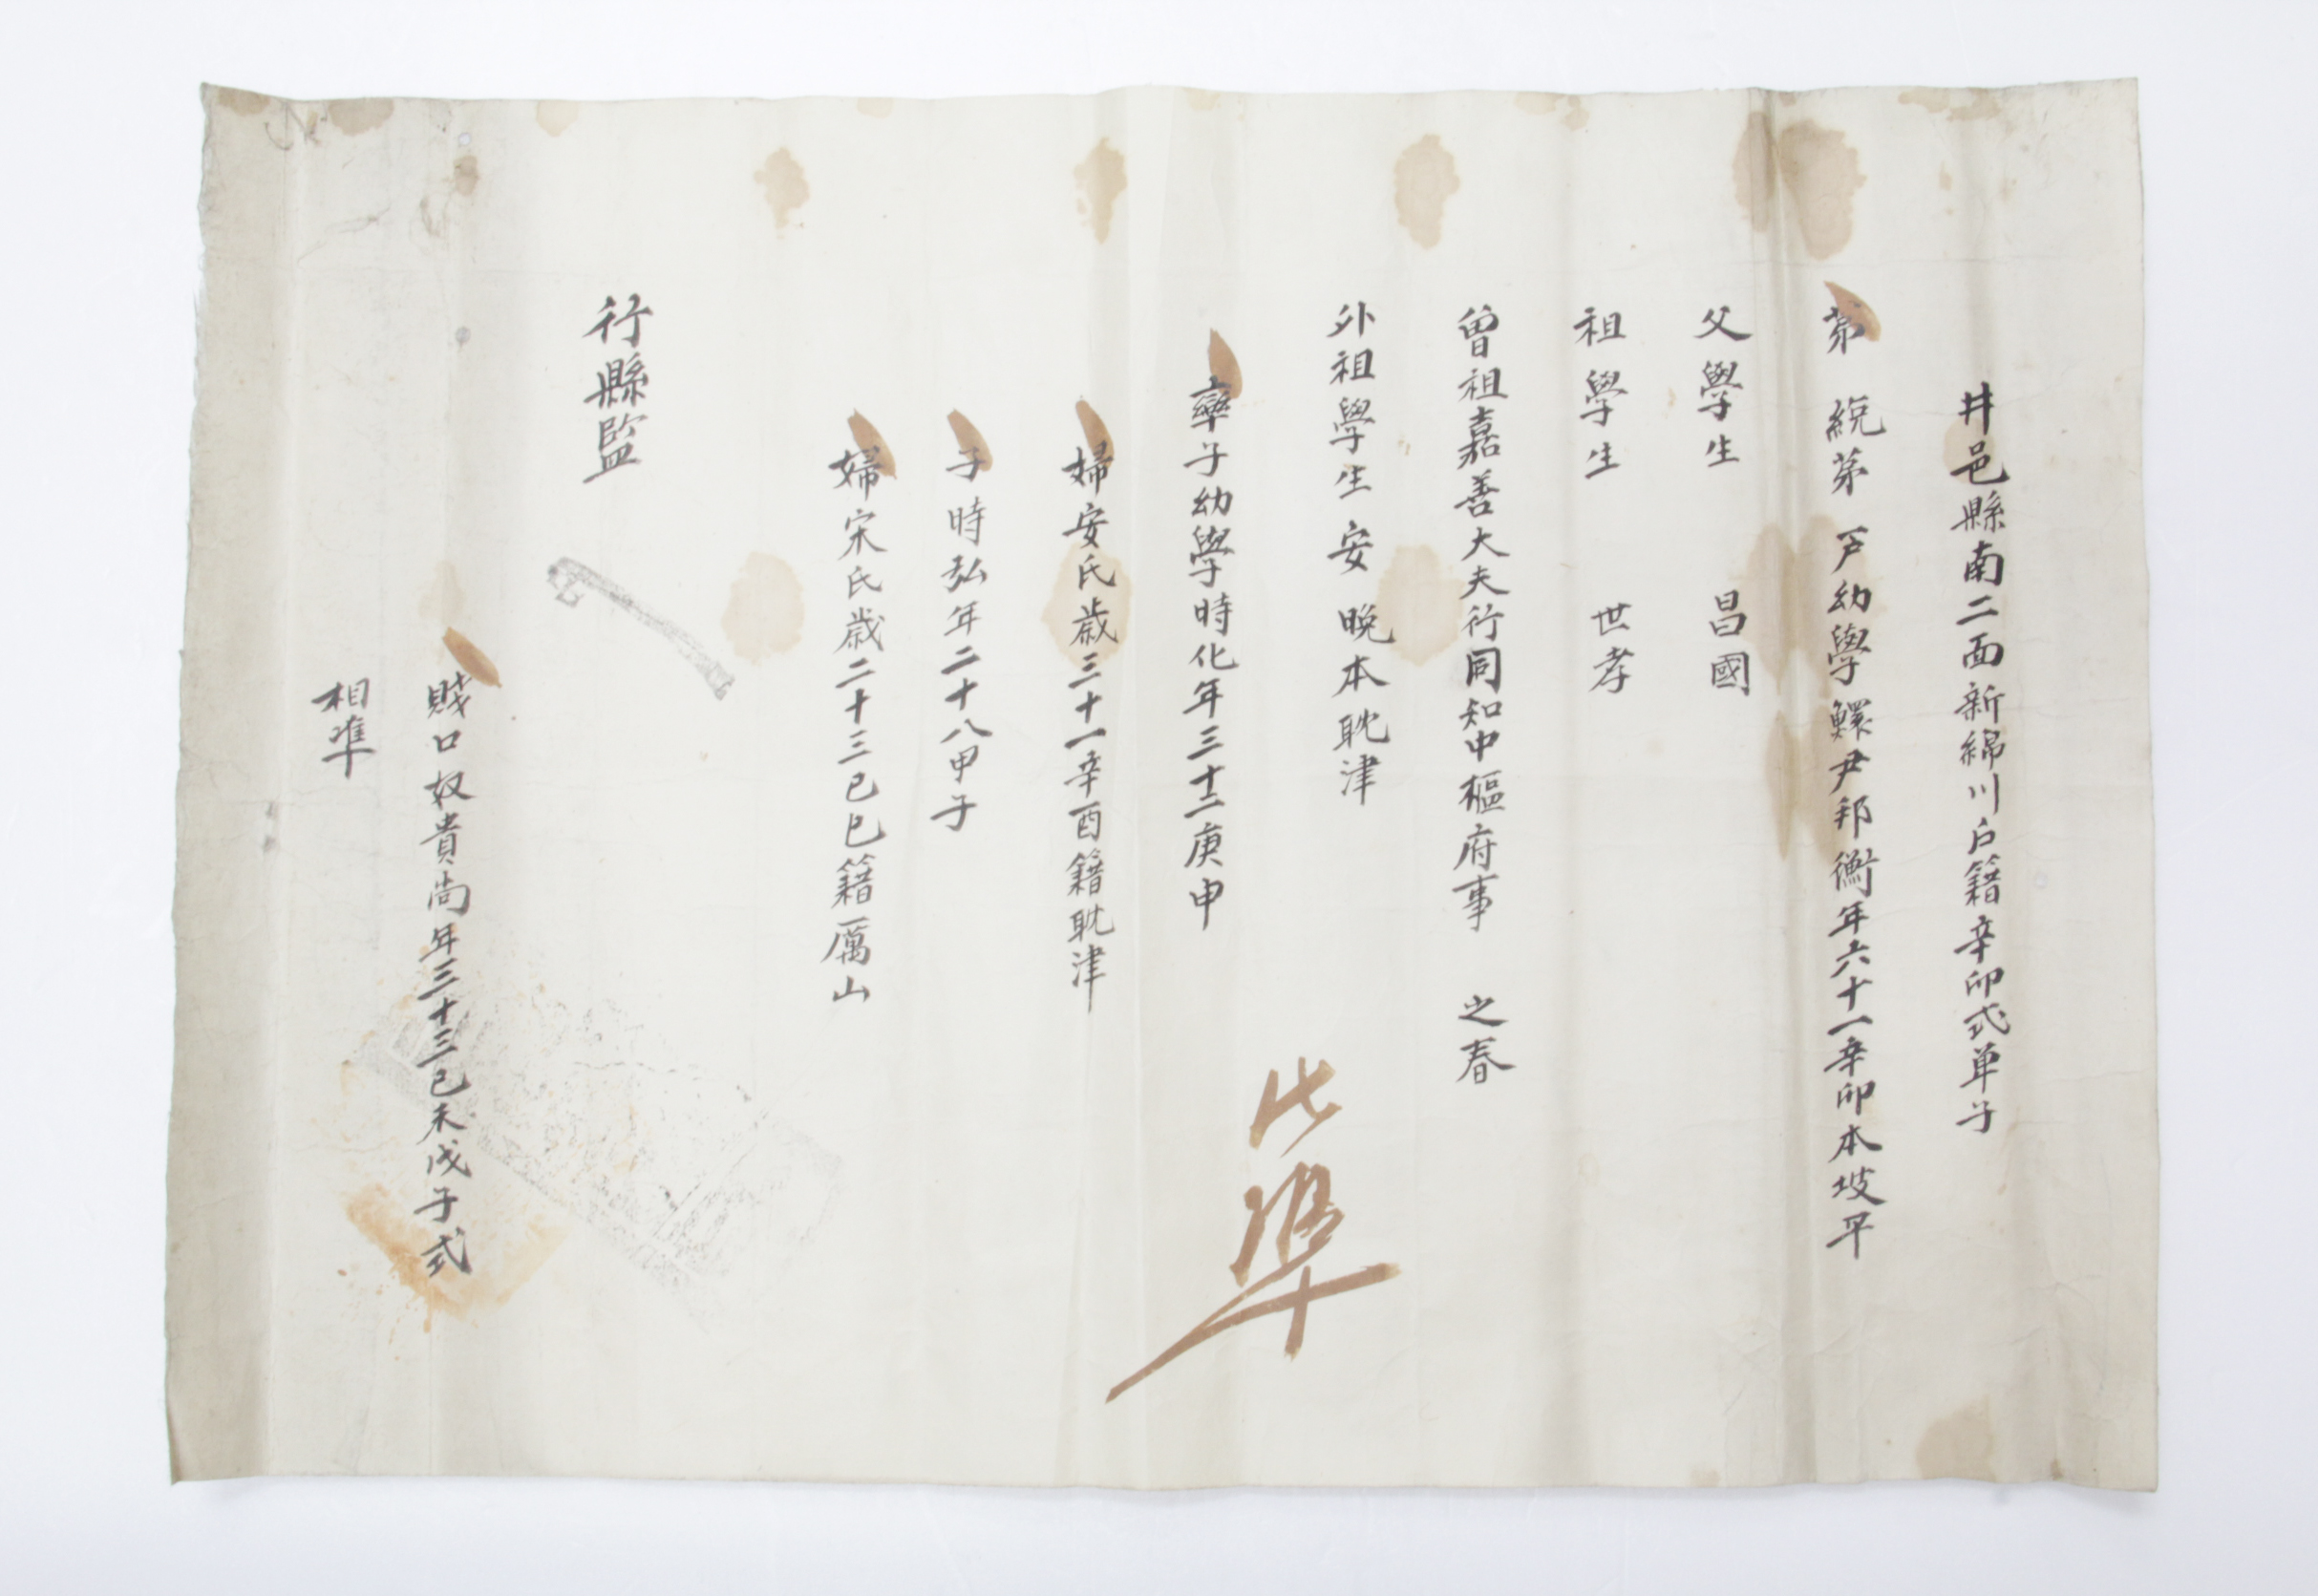 井邑縣南二面新綿川戶籍辛卯式单子
苐 統苐 戶幼學鰥尹邦衡年六十一辛卯本坡平
父學生 昌國
祖學生 世孝
曾祖嘉善大夫行同知中樞府事 之春
外祖學生安 晩本耽津
率子幼學時化年三十二庚申
婦安氏歲三十一辛酉籍耽津
子時弘年二十八甲子
婦宋氏歲二十三己巳籍厲山
行縣監
賤口奴貴尚年三十三己未戊子式
相準
此準